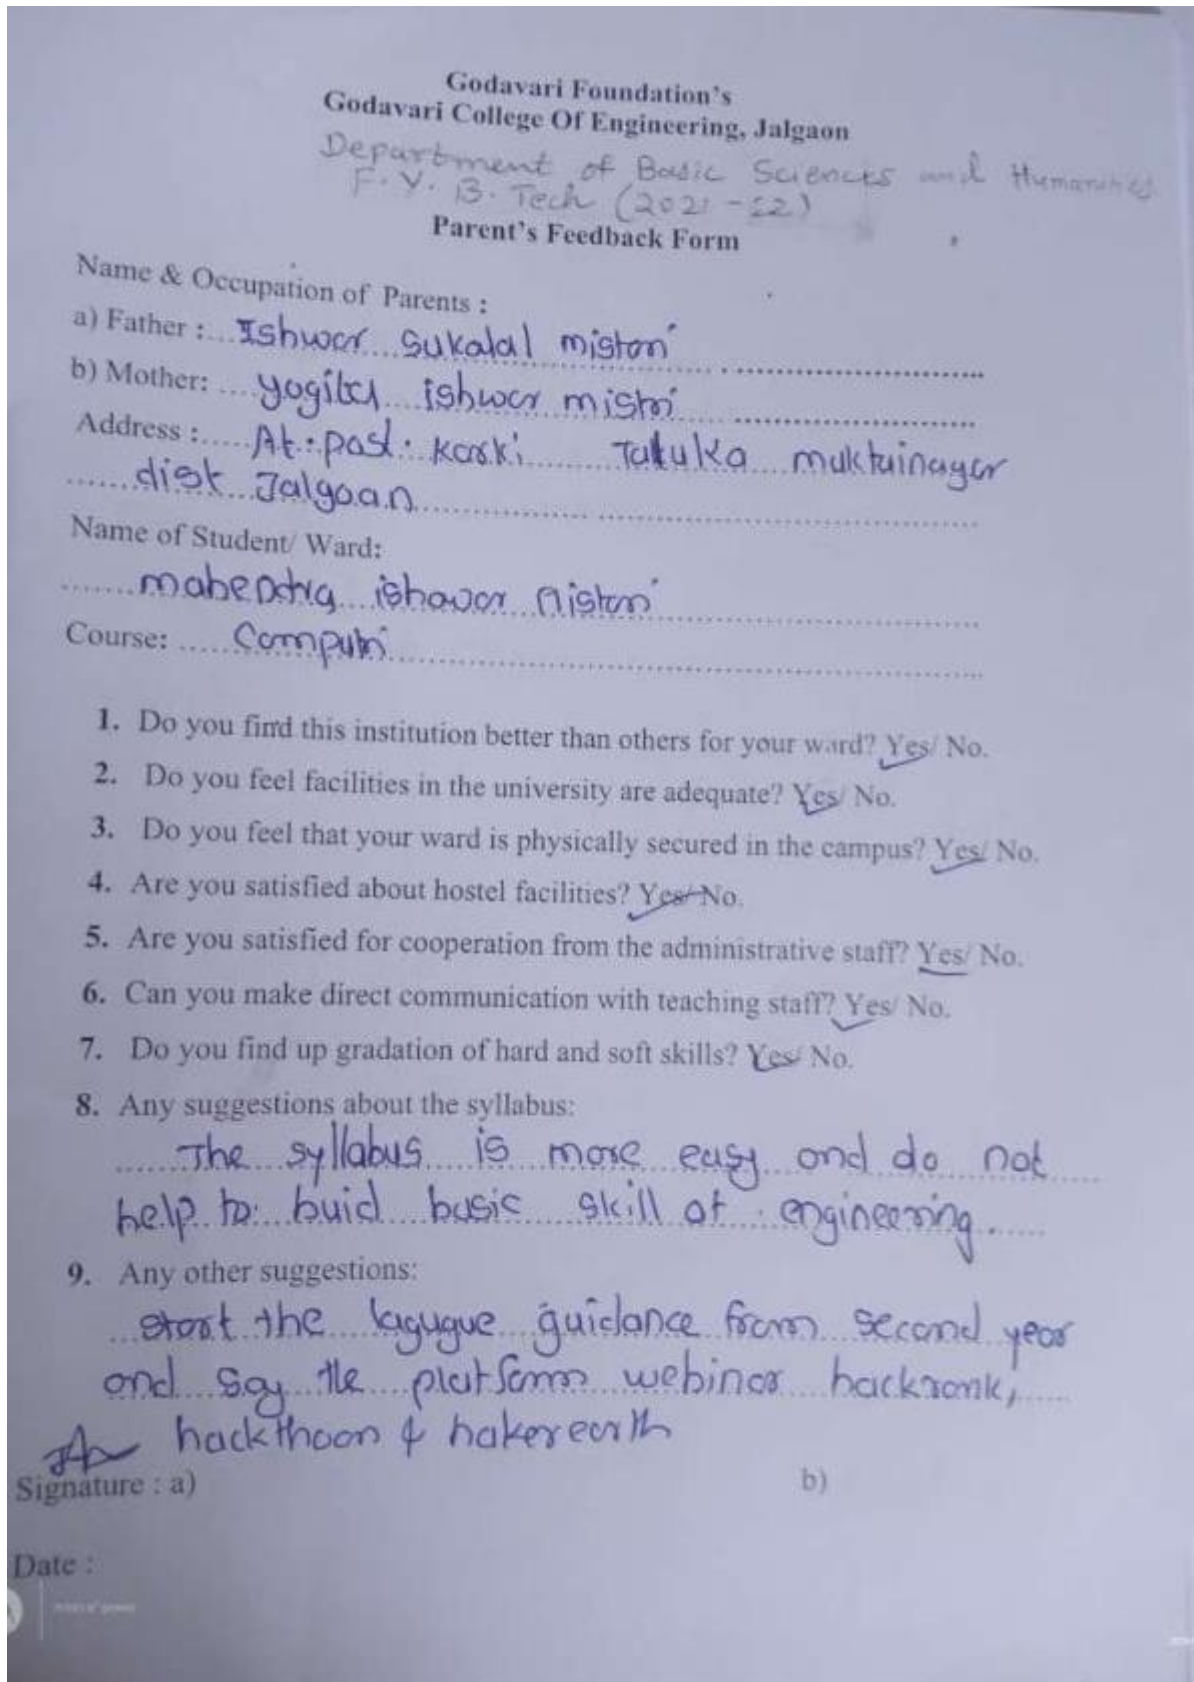 Godavari Foundation's
Godavari College Of Engineering, Jalgaon
Department of Basic Sciences and Humanities
F. Y. B. Tech (2021-22)
Parent's Feedback Form
Name & Occupation of Parents :
a) Father :...Ishwar...Sukalal mistori.........................
b) Mother: ....yogita...ishwar mistri.........................
Address :.....At.:.post.:.Korki........Taluka...muktainagar
.......dist...Jalgoan.......................................
Name of Student/ Ward:
.......mahendra...ishavor...Mistori.........................
Course: .....Computri.......................................
1. Do you find this institution better than others for your ward? Yes/ No.
2. Do you feel facilities in the university are adequate? Yes/ No.
3. Do you feel that your ward is physically secured in the campus? Yes/ No.
4. Are you satisfied about hostel facilities? Yes/ No.
5. Are you satisfied for cooperation from the administrative staff? Yes/ No.
6. Can you make direct communication with teaching staff? Yes/ No.
7. Do you find up gradation of hard and soft skills? Yes/ No.
8. Any suggestions about the syllabus:
.......The...syllabus....is...more...easy...and do...not.....
help..to...buid...basic.....skill of...engineering.......
9. Any other suggestions:
...start the...lagugue...guidance from...second year
and...say...the...platform...webinar...hackrank,......
hackthoon & hakerearth
Signature : a)
b)
Date :